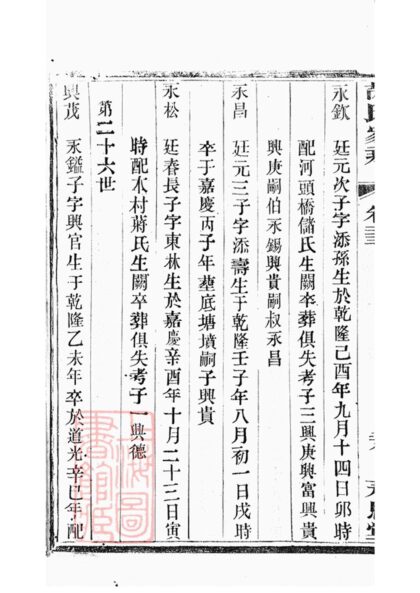 氏家乘
卷三
永欽 廷元次子字添孫生於乾隆己酉年九月十四日卯時
配河頭橋儲氏生闕卒葬俱失考子三興庚興富興貴
興庚嗣伯永錫興貴嗣叔永昌
永昌 廷元三子字添壽生于乾隆壬子年八月初一日戌時
卒于嘉慶丙子年葬底塘墳嗣子興貴
永松 廷春長子字東林生於嘉慶辛酉年十月二十三日寅
時配本村蔣氏生闕卒葬俱失考子一興德
第二十六世
興茂 永鑑子字興官生于乾隆乙未年卒於道光辛巳年配